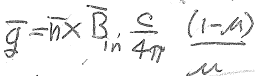 $\overline{g} = \overline{n} \times \overline{B}_{in} \frac{c}{4\pi} \frac{(1-\mu)}{\mu}$